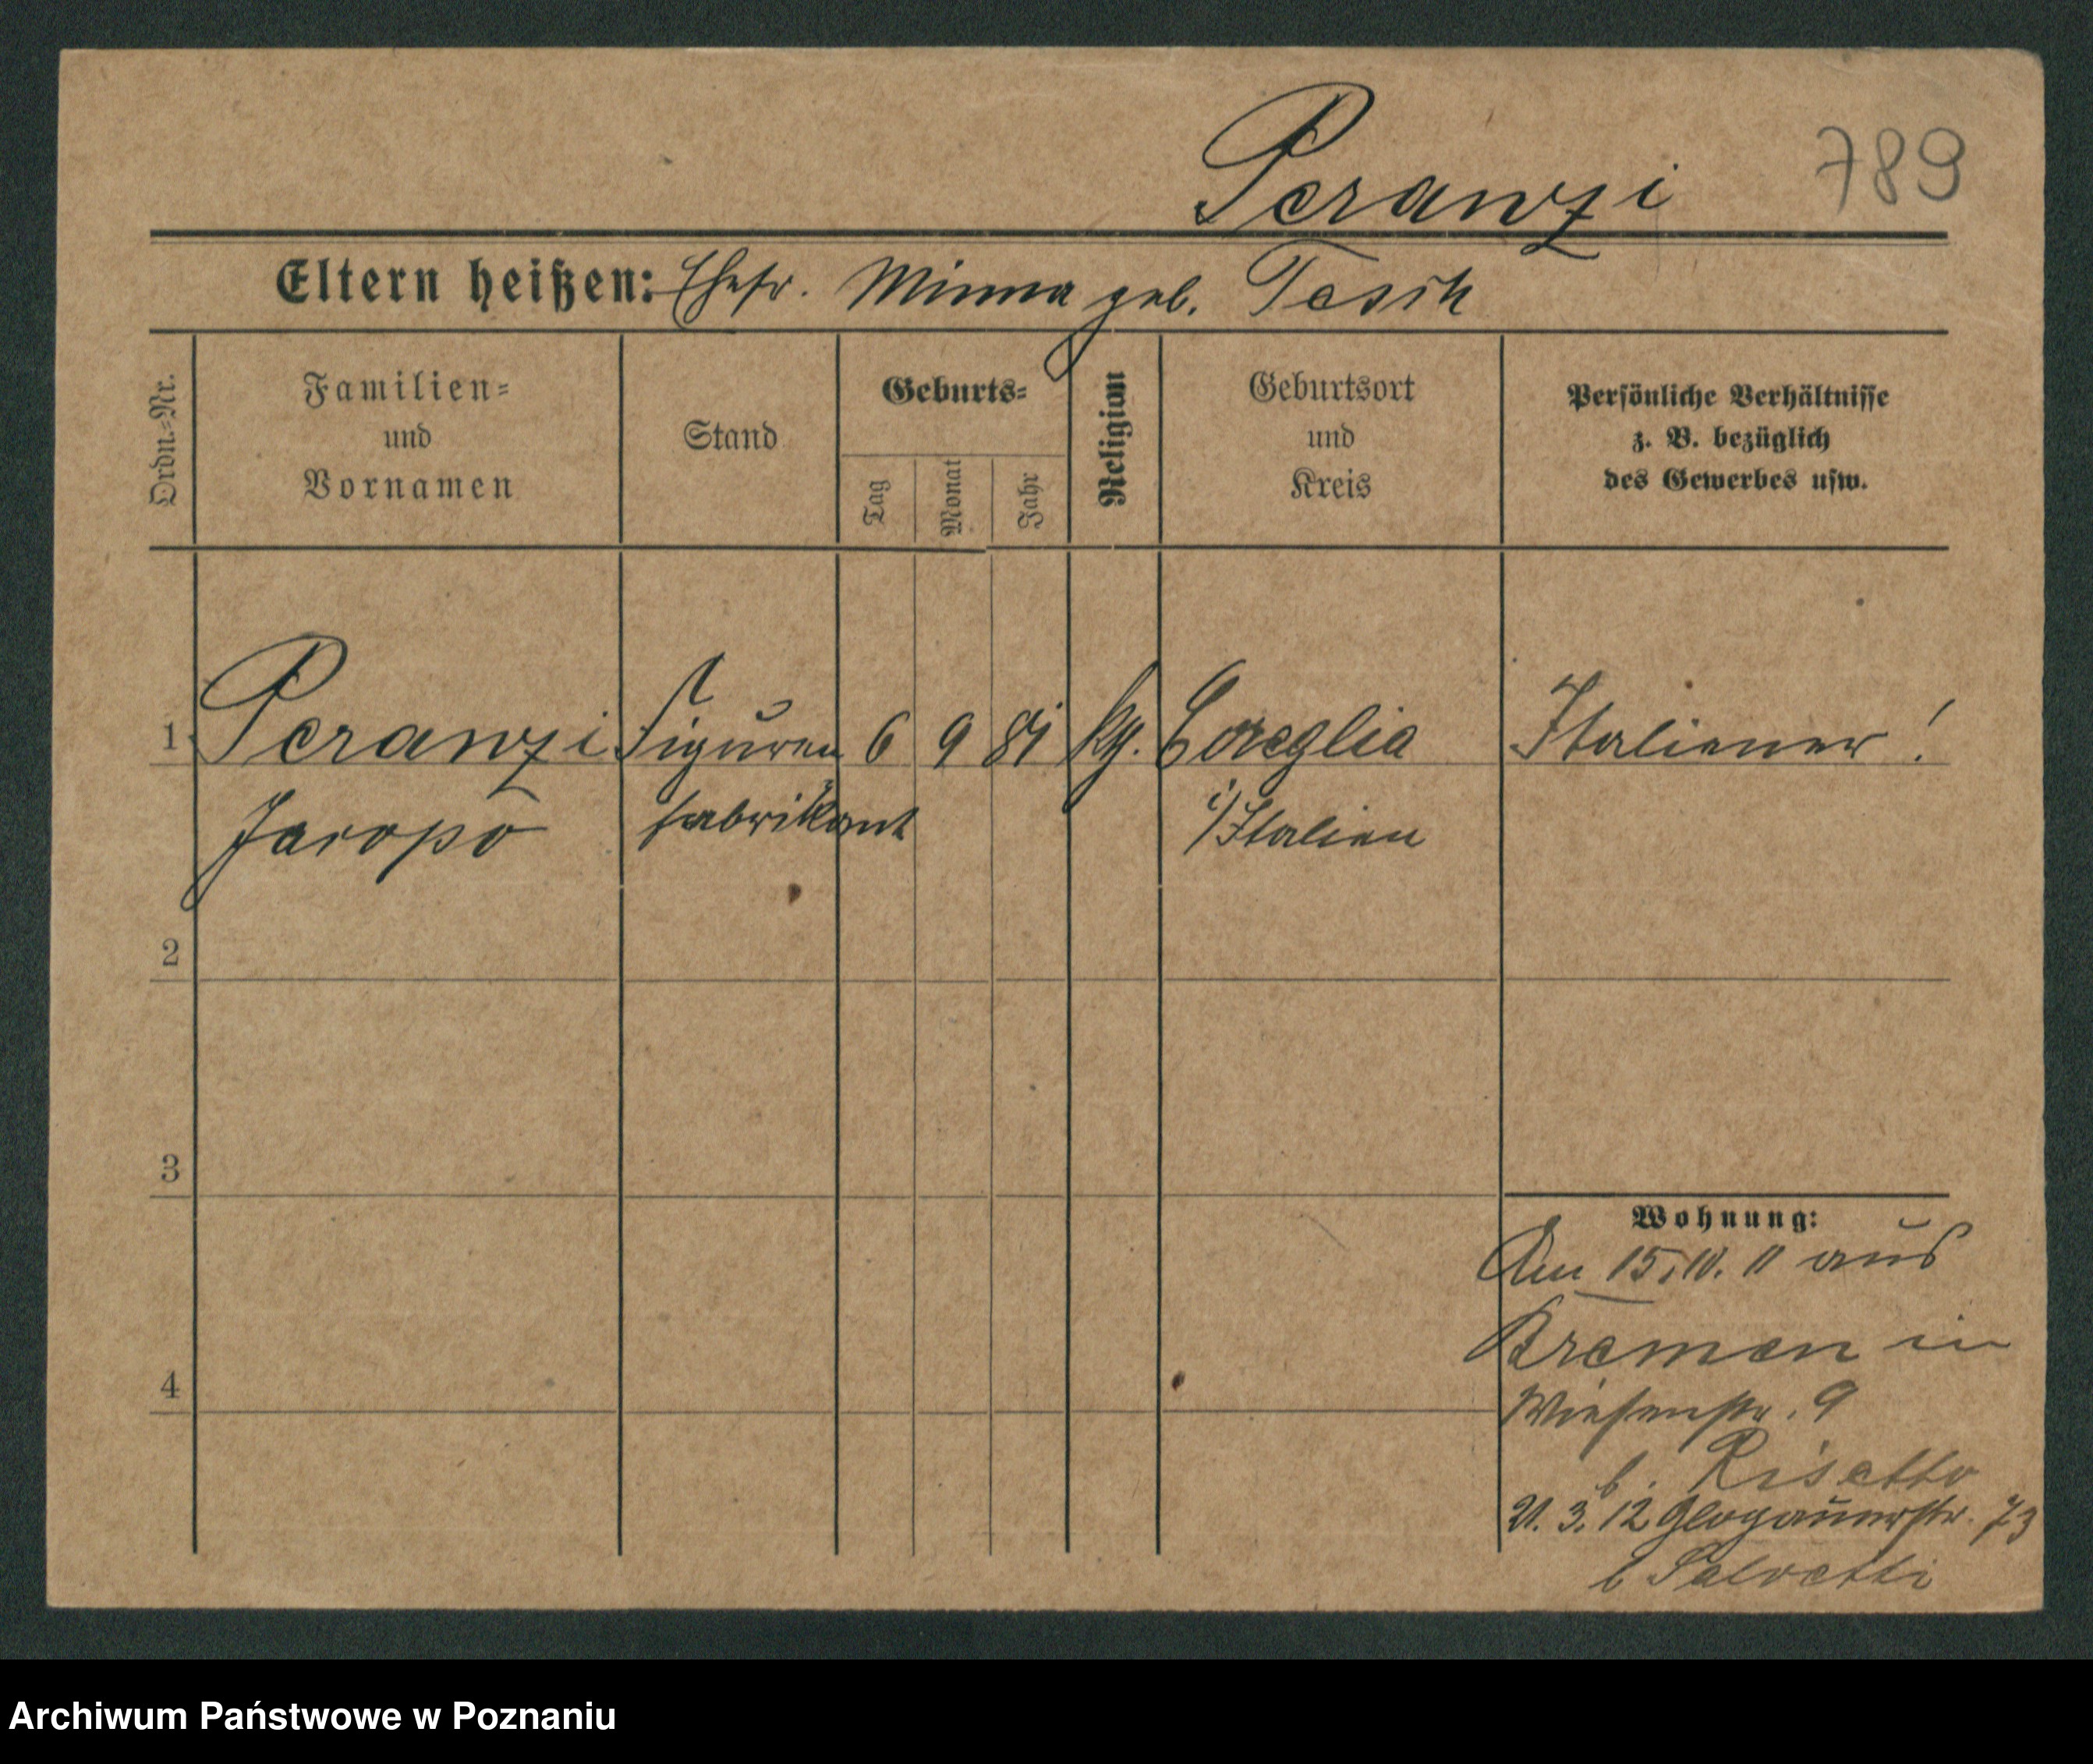 Peranzi 789
Eltern heißen: Ehefr. Minna geb. Tesch
Ordn.-Nr.
Familien-
und
Vornamen
Stand
Geburts-
Tag
Monat
Jahr
Religion
Geburtsort
und
Kreis
Persönliche Verhältnisse
z. B. bezüglich
des Gewerbes usw.
1 Peranzi Figuren 6 9 81 kg. Coreglia Italiener!
Jacopo fabrikant i/Italien
2
3
4
Wohnung:
Am 15.10.11 aus
Bremen in
Wiesenstr. 9
b. Risetto
21.3.12 Glogauerstr. 73
b Salvetti
Archiwum Państwowe w Poznaniu